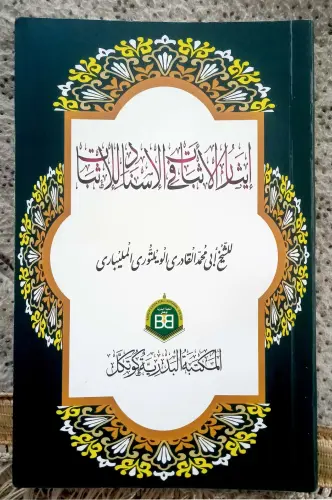 إيثار الأثبات في الإسناد للأثبات
للشيخ أبي محمد القادري الويلتوري المليباري
BB
المكتبة البدرية كوتكل